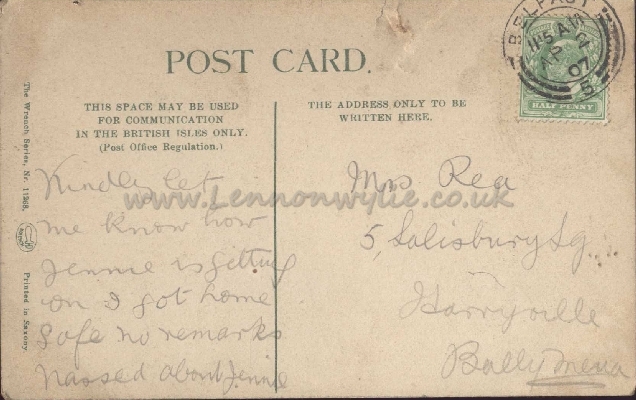 POST CARD.
BELFAST
11 45 AM
AP
07
5
HALF PENNY
THIS SPACE MAY BE USED
FOR COMMUNICATION
IN THE BRITISH ISLES ONLY.
(Post Office Regulation.)
THE ADDRESS ONLY TO BE
WRITTEN HERE.
The Wrench Series, Nr.
Printed in Saxony
Kindly let
me know how
Jennie is getting
on I got home
safe no remarks
passed about Jennie
www.Lennonwylie.co.uk
Mrs Rea
5, Salisbury Sq.
Harryville
Ballymena